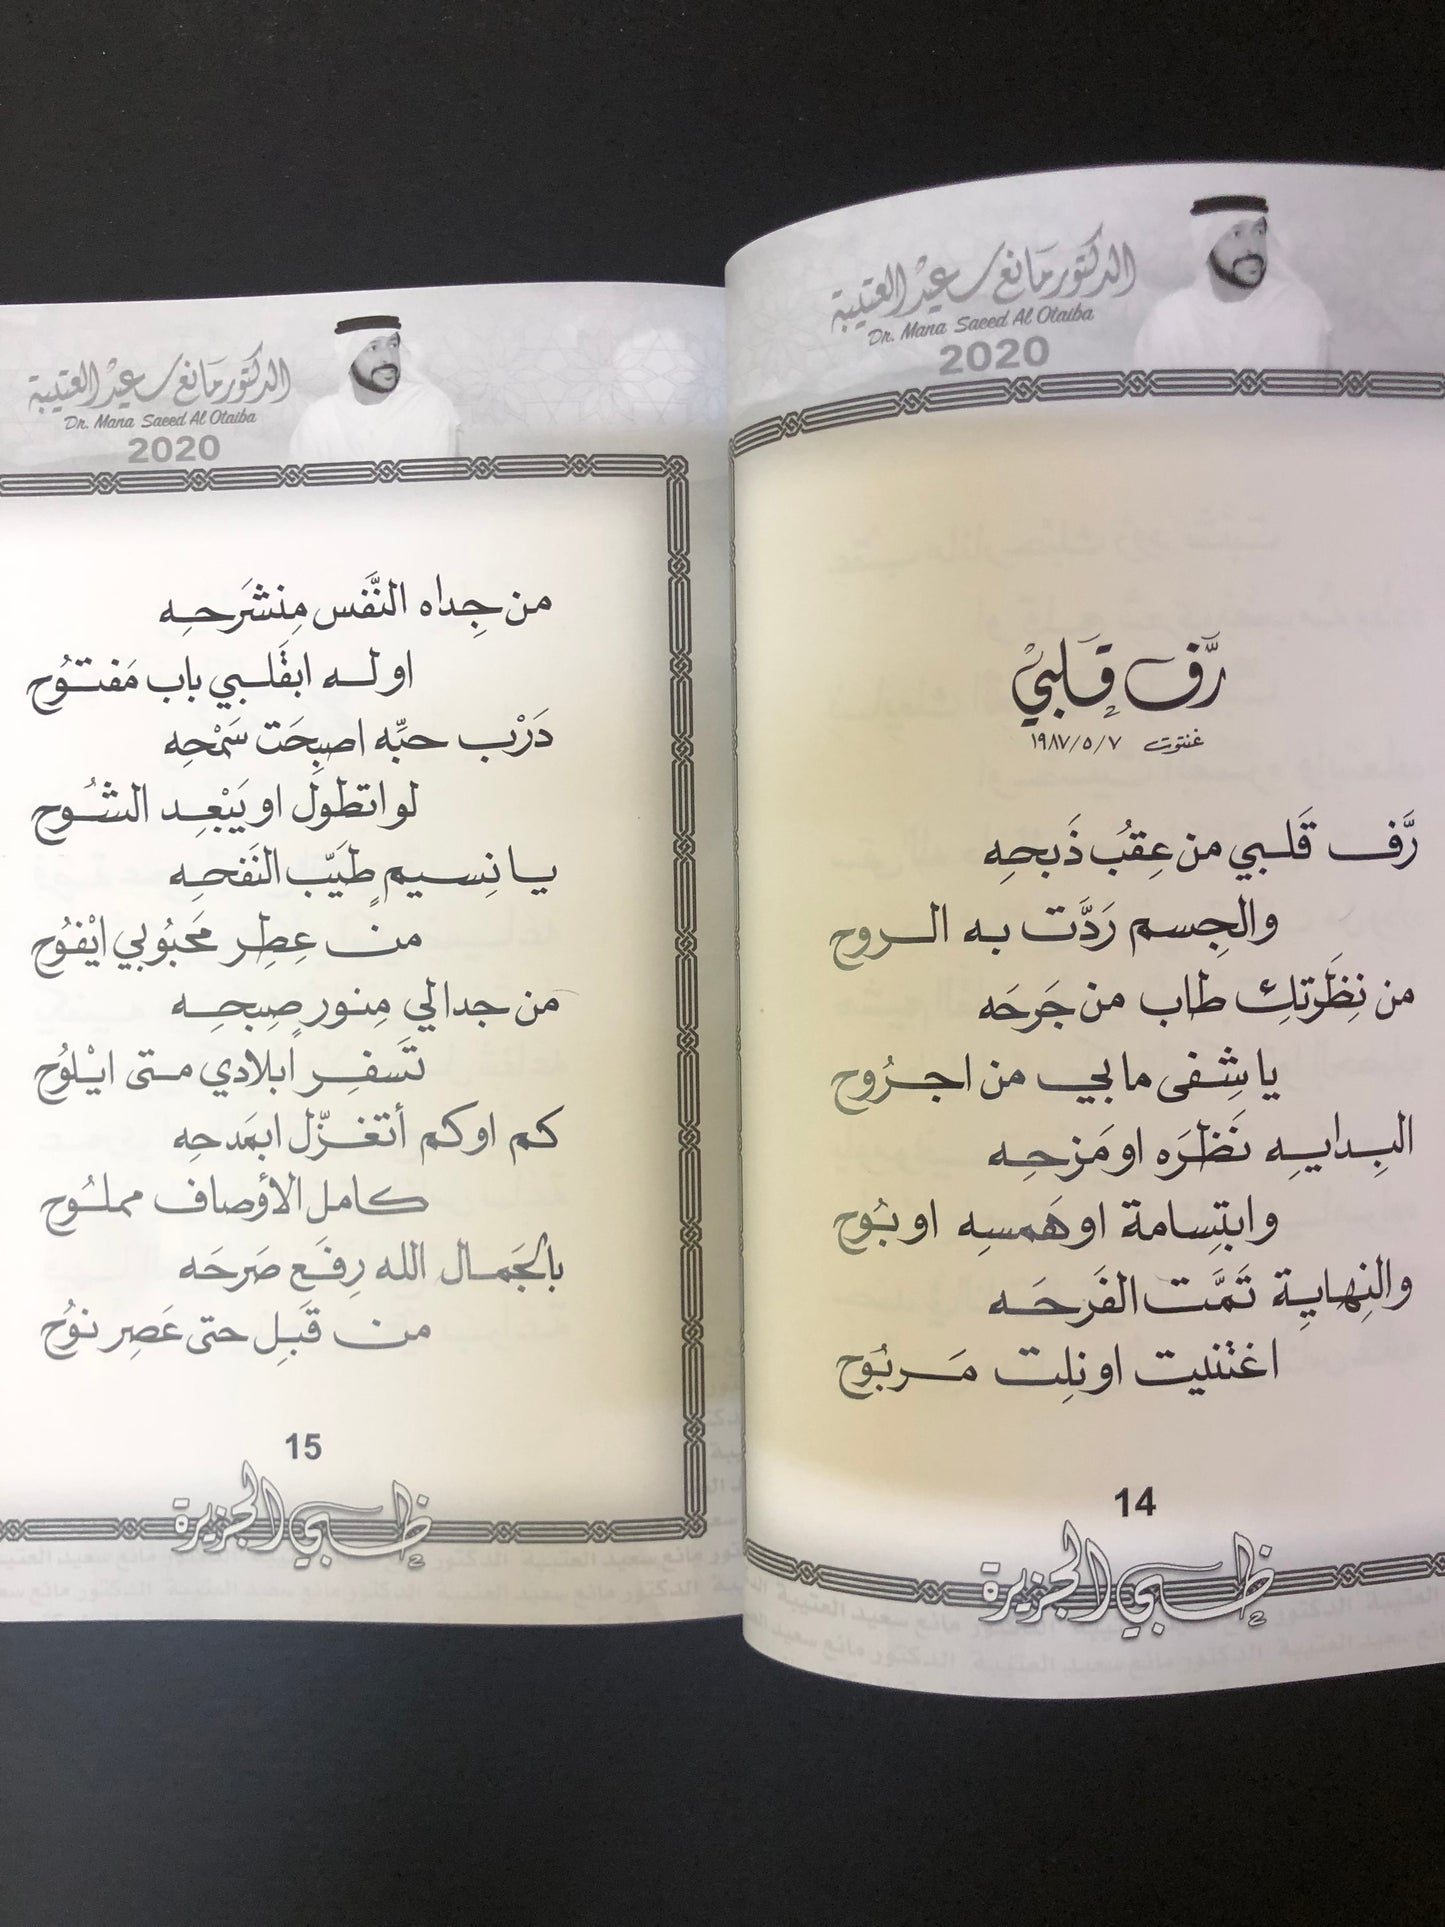 الدكتور مانع سعيد العتيبة
Dr. Mana Saeed Al Otaiba
2020
رَّف قَلبيْ
غنتوت ١٩٨٧/٥/٧
رَّف قَلبي من عِقبُ ذَبحِه
والجِسم رَدَّت به الروح
من نِظَرتكِ طاب من جَرحَه
يا شِفى ما بي من اجرُوح
البِدايِه نَظرَه او مَزحِه
وابتِسامة او هَمسِه او بُوح
والنِهايِة تَمَّت الفَرحَه
اغتنيت او نِلت مَربُوح
14
ظبي الجزيرة
الدكتور مانع سعيد العتيبة
Dr. Mana Saeed Al Otaiba
2020
من جِداه النَّفس مِنشَرحِه
او له ابقَلبي باب مَفتُوح
دَرْب حبِّه اصبِحَت سَمْحِه
لو اتطول او يَبْعِد الشُوح
يا نِسيم طَيّب النَفحِه
من عِطِر مَحبُوبي ايْفُوح
من جدالي مِنور صِبحِه
تَسفِر ابلادي متى ايْلُوح
كم اوكم أتغزّل ابمَدحِه
كامل الأوصاف مملُوح
بالجَمال الله رِفَع صَرحَه
من قَبلِ حتى عَصِر نوُح
15
ظبي الجزيرة